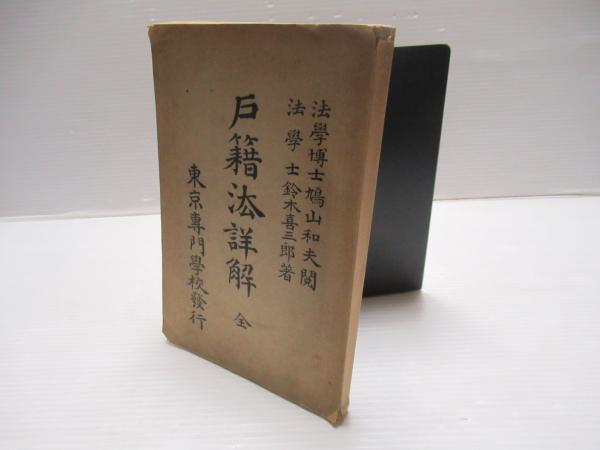 法學博士鳩山和夫閱
法學士鈴木喜三郎著
戶籍法詳解 全
東京專門學校發行